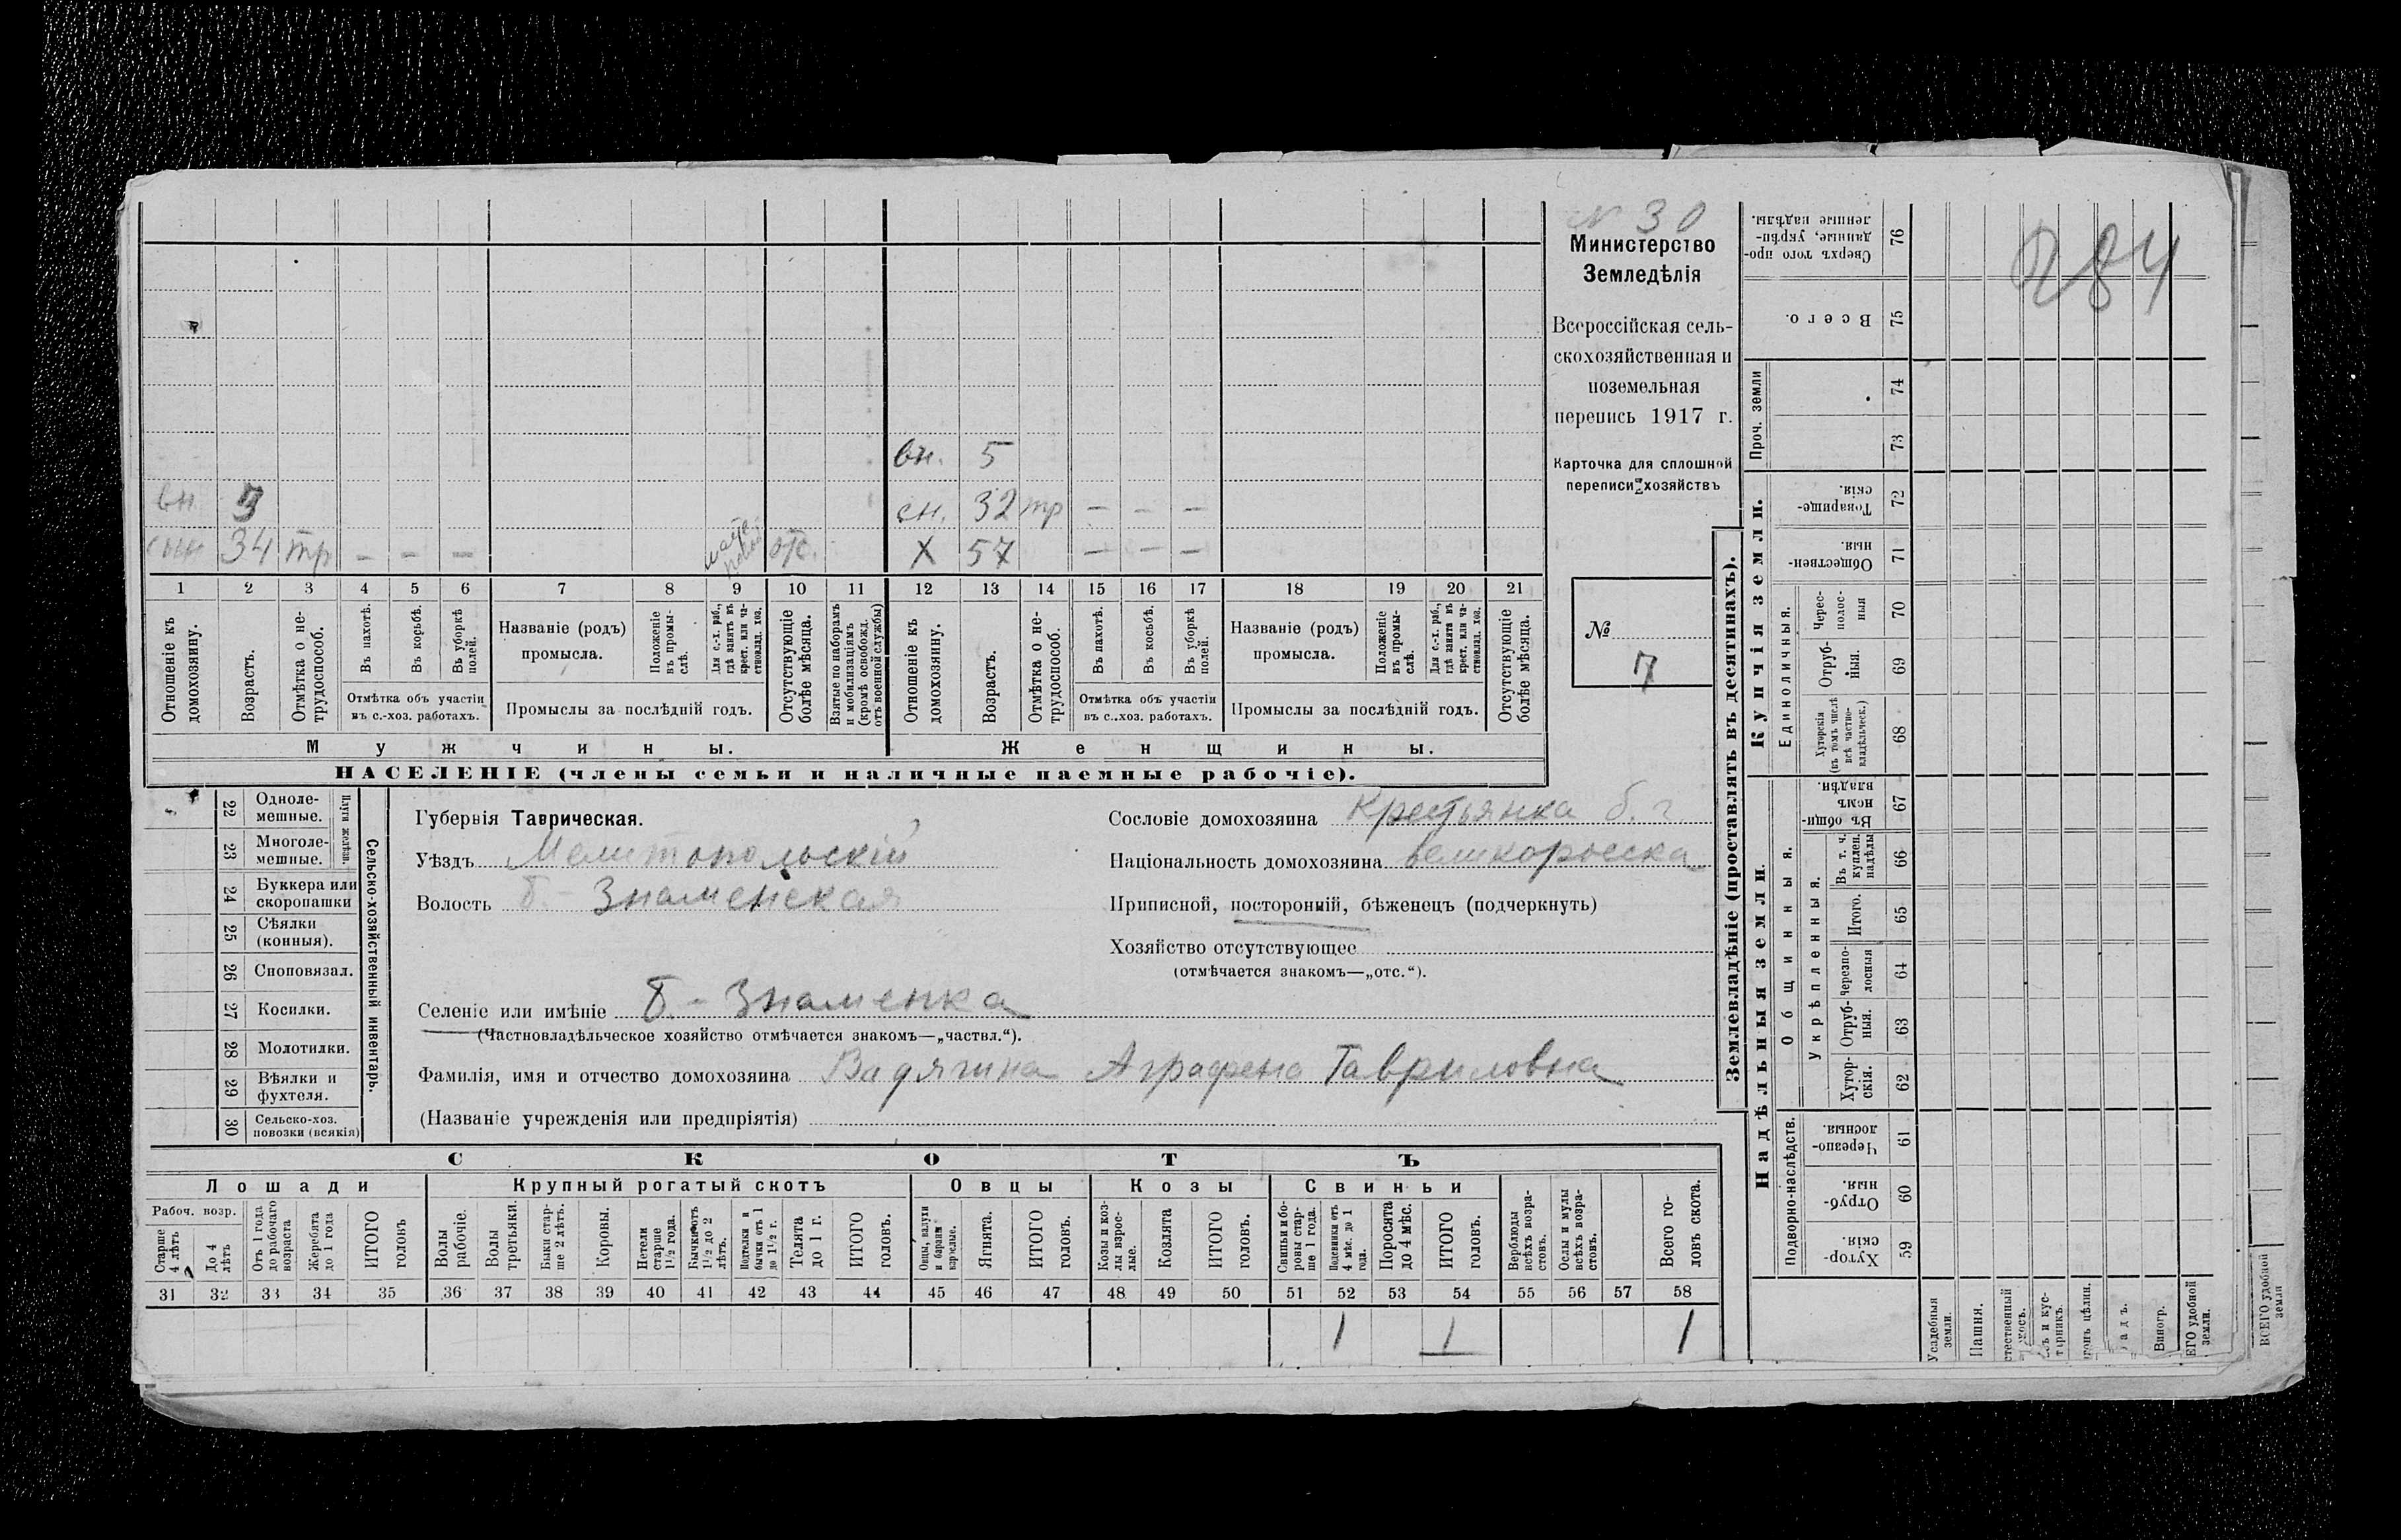 № 30
Министерство
Земледѣлія
Всероссійская сель-
скохозяйственная и
поземельная
перепись 1917 г.
Карточка для сплошной
переписи хозяйствъ
№
7
284
вн. 5
вн 3 сн. 32 тр – – –
сын 34 тр – – – отс. Х 57 – – –
1 2 3 4 5 6 7 8 9 10 11 12 13 14 15 16 17 18 19 20 21
Отношеніе къ домохозяину.
Возрастъ.
Отмѣтка о не-трудоспособ.
Въ пахотѣ.
Въ косьбѣ.
Въ уборкѣ полей.
Отмѣтка объ участіи
въ с.-хоз. работахъ.
Названіе (родъ)
промысла.
Положеніе въ промы-слѣ.
Для с.-х. раб., гдѣ занятъ въ крест. или ча-стновлад. хоз.
Промыслы за послѣдній годъ.
Отсутствующіе болѣе мѣсяца.
Взятые по наборамъ и мобилизаціямъ (кромѣ освобожд. отъ военной службы)
Отношеніе къ домохозяину.
Возрастъ.
Отмѣтка о не-трудоспособ.
Въ пахотѣ.
Въ косьбѣ.
Въ уборкѣ полей.
Отмѣтка объ участіи
въ с.-хоз. работахъ.
Названіе (родъ)
промысла.
Положеніе въ промы-слѣ.
Для с.-х. раб., гдѣ занята въ крест. или ча-стновлад. хоз.
Промыслы за послѣдній годъ.
Отсутствующіе болѣе мѣсяца.
Мужчины. Женщины.
НАСЕЛЕНІЕ (члены семьи и наличные наемные рабочіе).
Сельско-хозяйственный инвентарь.
Плуги желѣзн.
22 Одноле-мешные.
23 Многоле-мешные.
24 Буккера или скоропашки
25 Сѣялки (конныя).
26 Сноповязал.
27 Косилки.
28 Молотилки.
29 Вѣялки и фухтеля.
30 Сельско-хоз. повозки (всякія)
Губернія Таврическая.
Уѣздъ Мелитопольскій
Волость Б - Знаменская
Селеніе или имѣніе Б. - Знаменка
(Частновладѣльческое хозяйство отмѣчается знакомъ—„частвл.“).
Фамилія, имя и отчество домохозяина Вадягина Аграфена Гавриловна
(Названіе учрежденія или предпріятія)
Сословіе домохозяина Крестьянка б. г.
Національность домохозяина великоросска
Приписной, посторонній, бѣженецъ (подчеркнуть)
Хозяйство отсутствующее
(отмѣчается знакомъ—„отс.“).
СКОТЪ
Лошади Крупный рогатый скотъ Овцы Козы Свиньи
Рабоч. возр.
Старше 4 лѣтъ
До 4 лѣтъ
Отъ 1 года до рабочаго возраста
Жеребята до 1 года
ИТОГО головъ
Волы рабочіе.
Волы третьяки.
Быки стар-ше 2 лѣтъ.
Коровы.
Нетели старше 1½ года.
Бычки отъ 1½ до 2 лѣтъ.
Подтелки и бычки отъ 1 до 1½ г.
Телята до 1 г.
ИТОГО головъ.
Овцы, валухи и бараны взрослые.
Ягнята.
ИТОГО головъ.
Козы и коз-лы взрос-лые.
Козлята
ИТОГО головъ.
Свиньи и бо-ровы стар-ше 1 года.
Подсвинки отъ 4 мѣс. до 1 года.
Поросята до 4 мѣс.
ИТОГО головъ.
Верблюды всѣхъ возра-стовъ.
Ослы и мулы всѣхъ возра-стовъ.
Всего го-ловъ скота.
31 32 33 34 35 36 37 38 39 40 41 42 43 44 45 46 47 48 49 50 51 52 53 54 55 56 57 58
1 1 1
Землевладѣніе (проставлять въ десятинахъ).
Надѣльныя земли. Купчія земли.
Проч. земли
Сверхъ того про-данные, укрѣп-ленные надѣлы. 76
Всего. 75
74
73
Товарище-скія. 72
Обществен-ныя. 71
Единоличныя.
Черес-полос-ныя 70
Отруб-ныя. 69
Хуторскія (въ томъ числѣ всѣ частно-владѣльческ.) 68
Общинныя.
Въ общин-номъ владѣн. 67
Укрѣпленныя.
Въ т. ч. куплен. надѣлы 66
Итого. 65
Черезпо-лосныя 64
Отруб-ныя. 63
Хутор-скія. 62
Подворно-наслѣдств.
Черезпо-лосныя. 61
Отруб-ныя. 60
Хутор-скія. 59
Усадебныя земли.
Пашня.
Виногр.
ЕГО удобной земли.
ВСЕГО удобной земли